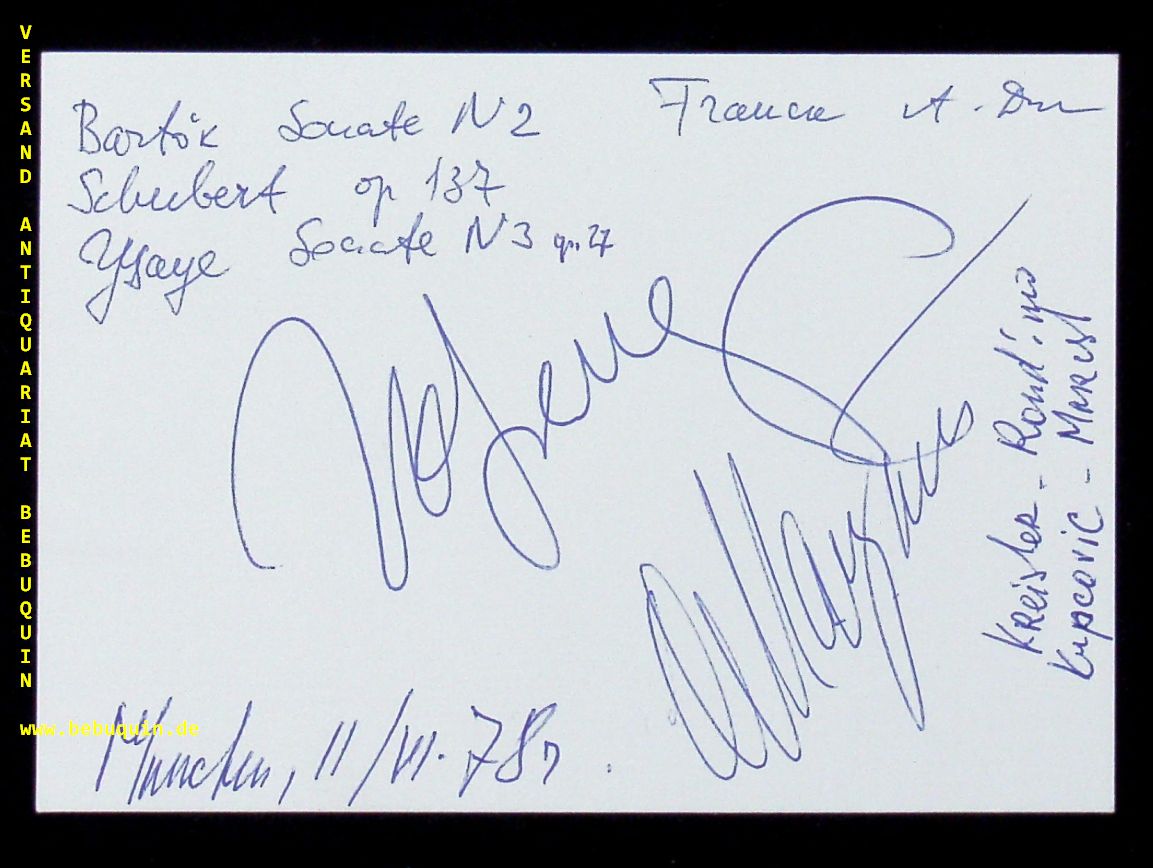 VERSAND ANTIQUARIAT BEBUQUIN
www.bebuquin.de
Bartók Sonate N 2
Franck A-Dur
Schubert op 137
Ysaye Sonate N 3 op. 27
Kreisler - Rondino
Kupcovic - Marest
München, 11/VI. 78